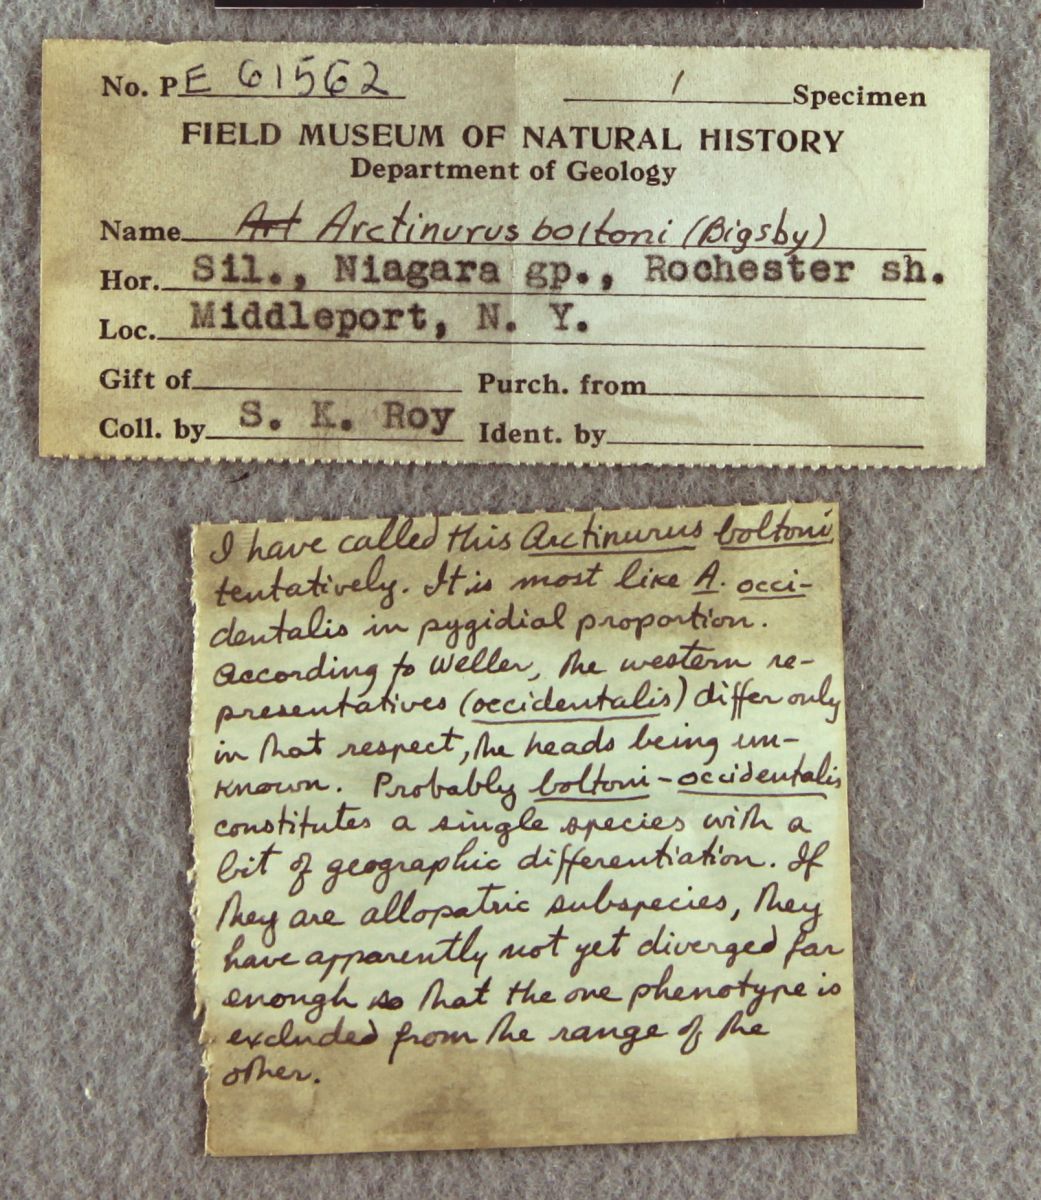 No. PE 61562 1 Specimen
FIELD MUSEUM OF NATURAL HISTORY
Department of Geology
Name Art Arctinurus boltoni (Bigsby)
Hor. Sil., Niagara gp., Rochester sh.
Loc. Middleport, N. Y.
Gift of Purch. from
Coll. by S. K. Roy Ident. by
I have called this Arctinurus boltoni
tentatively. It is most like A. occi-
dentalis in pygidial proportion.
According to Weller, the western re-
presentatives (occidentalis) differ only
in that respect, the heads being un-
known. Probably boltoni-occidentalis
constitutes a single species with a
bit of geographic differentiation. If
they are allopatric subspecies, they
have apparently not yet diverged far
enough so that the one phenotype is
excluded from the range of the
other.